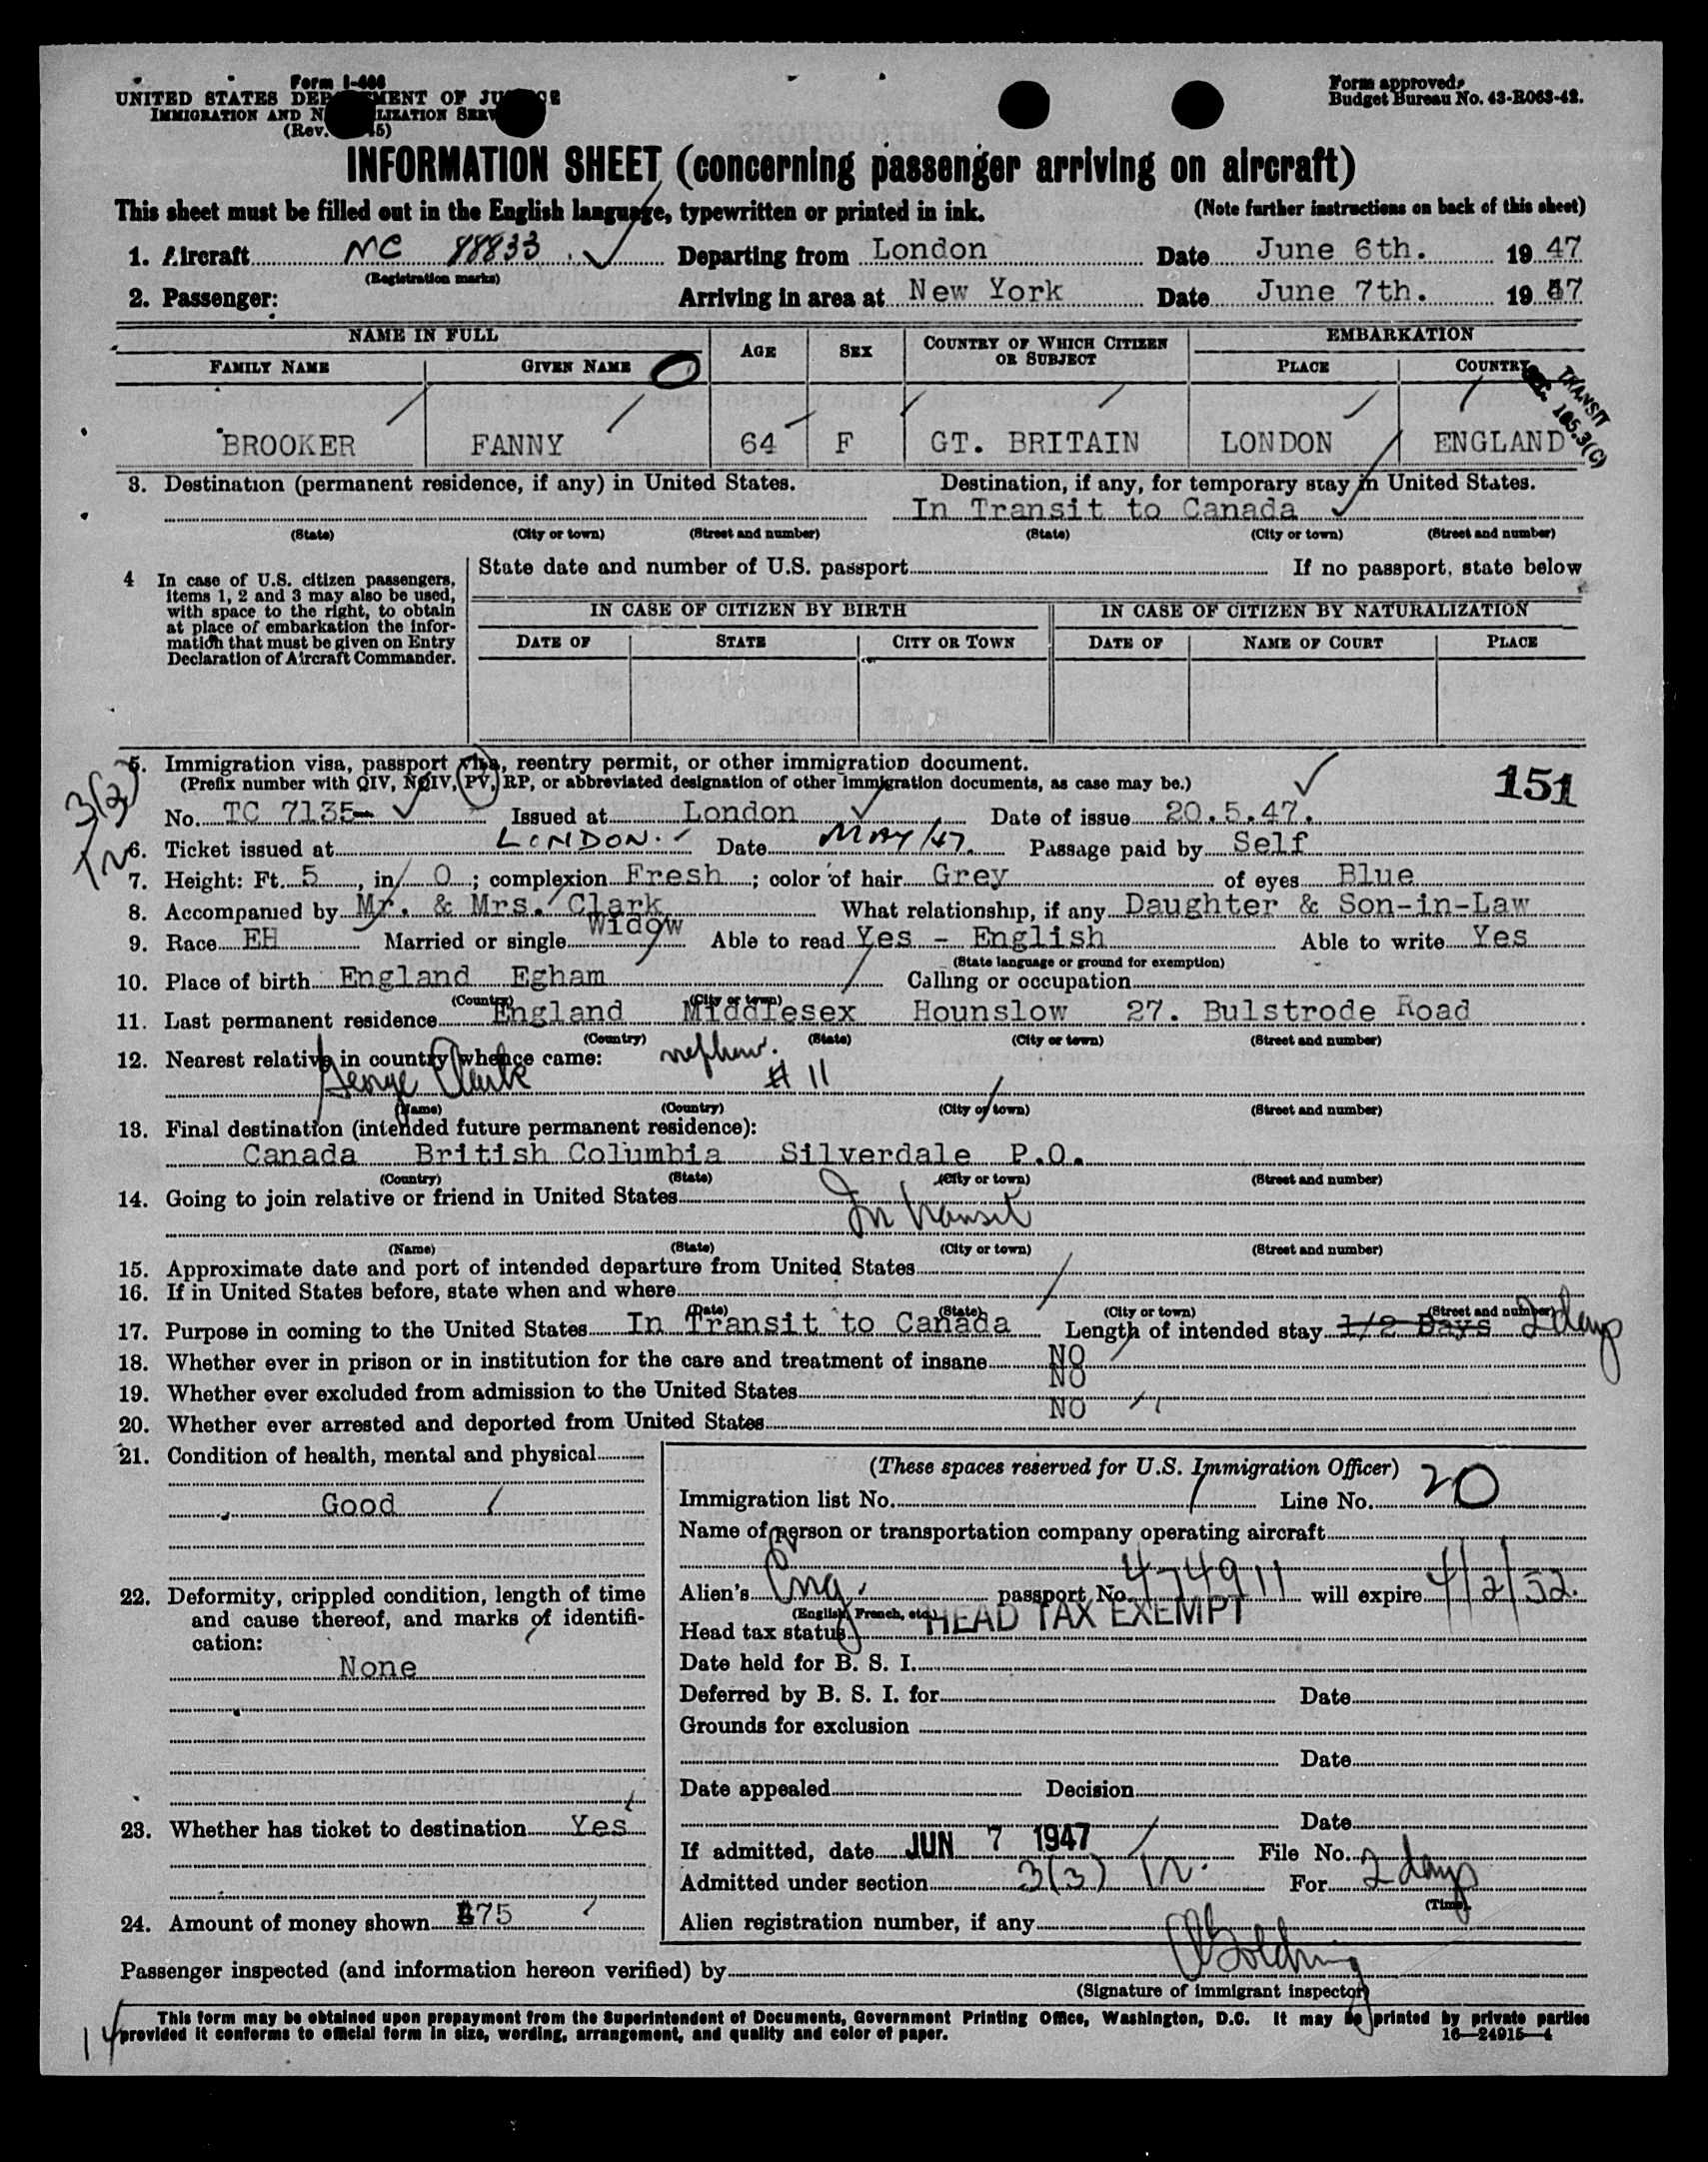 Form I-466
UNITED STATES DEP MENT OF JU CE
IMMIGRATION AND N LIZATION SERV
(Rev. 45)
Form approved.
Budget Bureau No. 43-R063-42.
INFORMATION SHEET (concerning passenger arriving on aircraft)
This sheet must be filled out in the English language, typewritten or printed in ink. (Note further instructions on back of this sheet)
1. Aircraft NC 88833 Departing from London Date June 6th. 19 47
(Registration marks)
2. Passenger: Arriving in area at New York Date June 7th. 19 47
NAME IN FULL AGE SEX COUNTRY OF WHICH CITIZEN OR SUBJECT EMBARKATION
FAMILY NAME GIVEN NAME PLACE COUNTRY
TRANSIT
SEC. 165.3(C)
BROOKER FANNY 64 F GT. BRITAIN LONDON ENGLAND
3. Destination (permanent residence, if any) in United States. Destination, if any, for temporary stay in United States.
In Transit to Canada
(State) (City or town) (Street and number) (State) (City or town) (Street and number)
4 In case of U.S. citizen passengers, items 1, 2 and 3 may also be used, with space to the right, to obtain at place of embarkation the information that must be given on Entry Declaration of Aircraft Commander.
State date and number of U.S. passport If no passport, state below
IN CASE OF CITIZEN BY BIRTH IN CASE OF CITIZEN BY NATURALIZATION
DATE OF STATE CITY OR TOWN DATE OF NAME OF COURT PLACE
5. Immigration visa, passport visa, reentry permit, or other immigration document.
(Prefix number with QIV, NQIV, PV, RP, or abbreviated designation of other immigration documents, as case may be.)
151
3(3)
No. TC 7135 Issued at London Date of issue 20.5.47.
6. Ticket issued at LONDON. Date MAY/47. Passage paid by Self
7. Height: Ft. 5, in. 0; complexion Fresh; color of hair Grey of eyes Blue
8. Accompanied by Mr. & Mrs. Clark What relationship, if any Daughter & Son-in-Law
9. Race EH Married or single Widow Able to read Yes - English Able to write Yes
(State language or ground for exemption)
10. Place of birth England Egham Calling or occupation
(Country) (City or town)
11. Last permanent residence England Middlesex Hounslow 27. Bulstrode Road
(Country) (State) (City or town) (Street and number)
12. Nearest relative in country whence came: nephew.
George Clark # 11
(Name) (Country) (City or town) (Street and number)
13. Final destination (intended future permanent residence):
Canada British Columbia Silverdale P.O.
(Country) (State) (City or town) (Street and number)
14. Going to join relative or friend in United States
In transit
(Name) (State) (City or town) (Street and number)
15. Approximate date and port of intended departure from United States
16. If in United States before, state when and where
(Date) (State) (City or town) (Street and number)
17. Purpose in coming to the United States In Transit to Canada Length of intended stay 1/2 Days 2 days
18. Whether ever in prison or in institution for the care and treatment of insane NO
19. Whether ever excluded from admission to the United States NO
20. Whether ever arrested and deported from United States NO
21. Condition of health, mental and physical
Good
22. Deformity, crippled condition, length of time and cause thereof, and marks of identification:
None
23. Whether has ticket to destination Yes
24. Amount of money shown £75
(These spaces reserved for U.S. Immigration Officer)
Immigration list No. Line No. 20
Name of person or transportation company operating aircraft
Alien's Eng. passport No. 474911 will expire 4/2/52.
(English, French, etc.)
Head tax status HEAD TAX EXEMPT
Date held for B. S. I.
Deferred by B. S. I. for Date
Grounds for exclusion
Date
Date appealed Decision
Date
If admitted, date JUN 7 1947 File No.
Admitted under section 3(3) For 2 days
(Time)
Alien registration number, if any
Passenger inspected (and information hereon verified) by
(Signature of immigrant inspector)
This form may be obtained upon prepayment from the Superintendent of Documents, Government Printing Office, Washington, D.C. It may be printed by private parties
provided it conforms to official form in size, wording, arrangement, and quality and color of paper. 16—24915—4
14